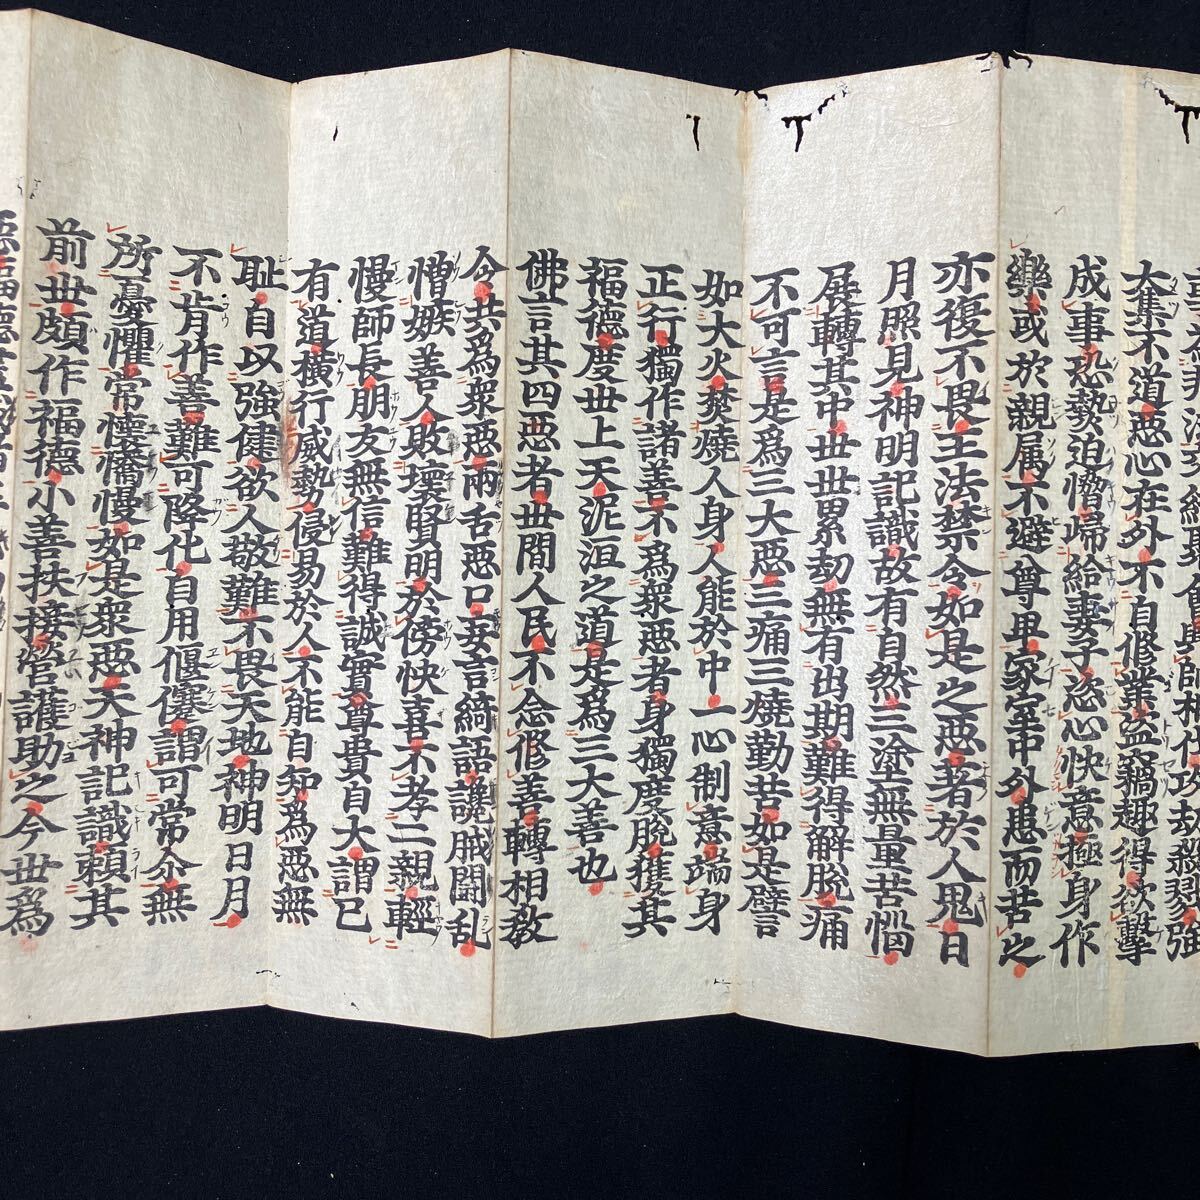 師相伐攻劫殺戮強
大集不道惡心在外不自修業盜竊趣得欲擊
成事恐勢迫愶歸給妻子恣心快意極身作
樂或於親属不避尊卑家室中外患而苦之
亦復不畏王法禁令如是之惡著於人鬼日
月照見神明記識故有自然三塗無量苦惱
展轉其中世世累劫無有出期難得解脫痛
不可言是爲三大惡三痛三燒勤苦如是譬
如大火焚燒人身人能於中一心制意端身
正行獨作諸善不爲衆惡者身獨度脫獲其
福德度世上天泥洹之道是爲三大善也
佛言其四惡者世間人民不念修善轉相教
令共爲衆惡兩舌惡口妄言綺語讒賊鬪乱
憎嫉善人敗壞賢明於傍快喜不孝二親輕
慢師長朋友無信難得誠實尊貴自大謂己
有道橫行威勢侵易於人不能自知爲惡無
耻自以強健欲人敬難不畏天地神明日月
不肯作善難可降化自用偃蹇謂可常尒無
所憂懼常懷憍慢如是衆惡天神記識賴其
前世頗作福德小善扶接營護助之今世爲
惡福德